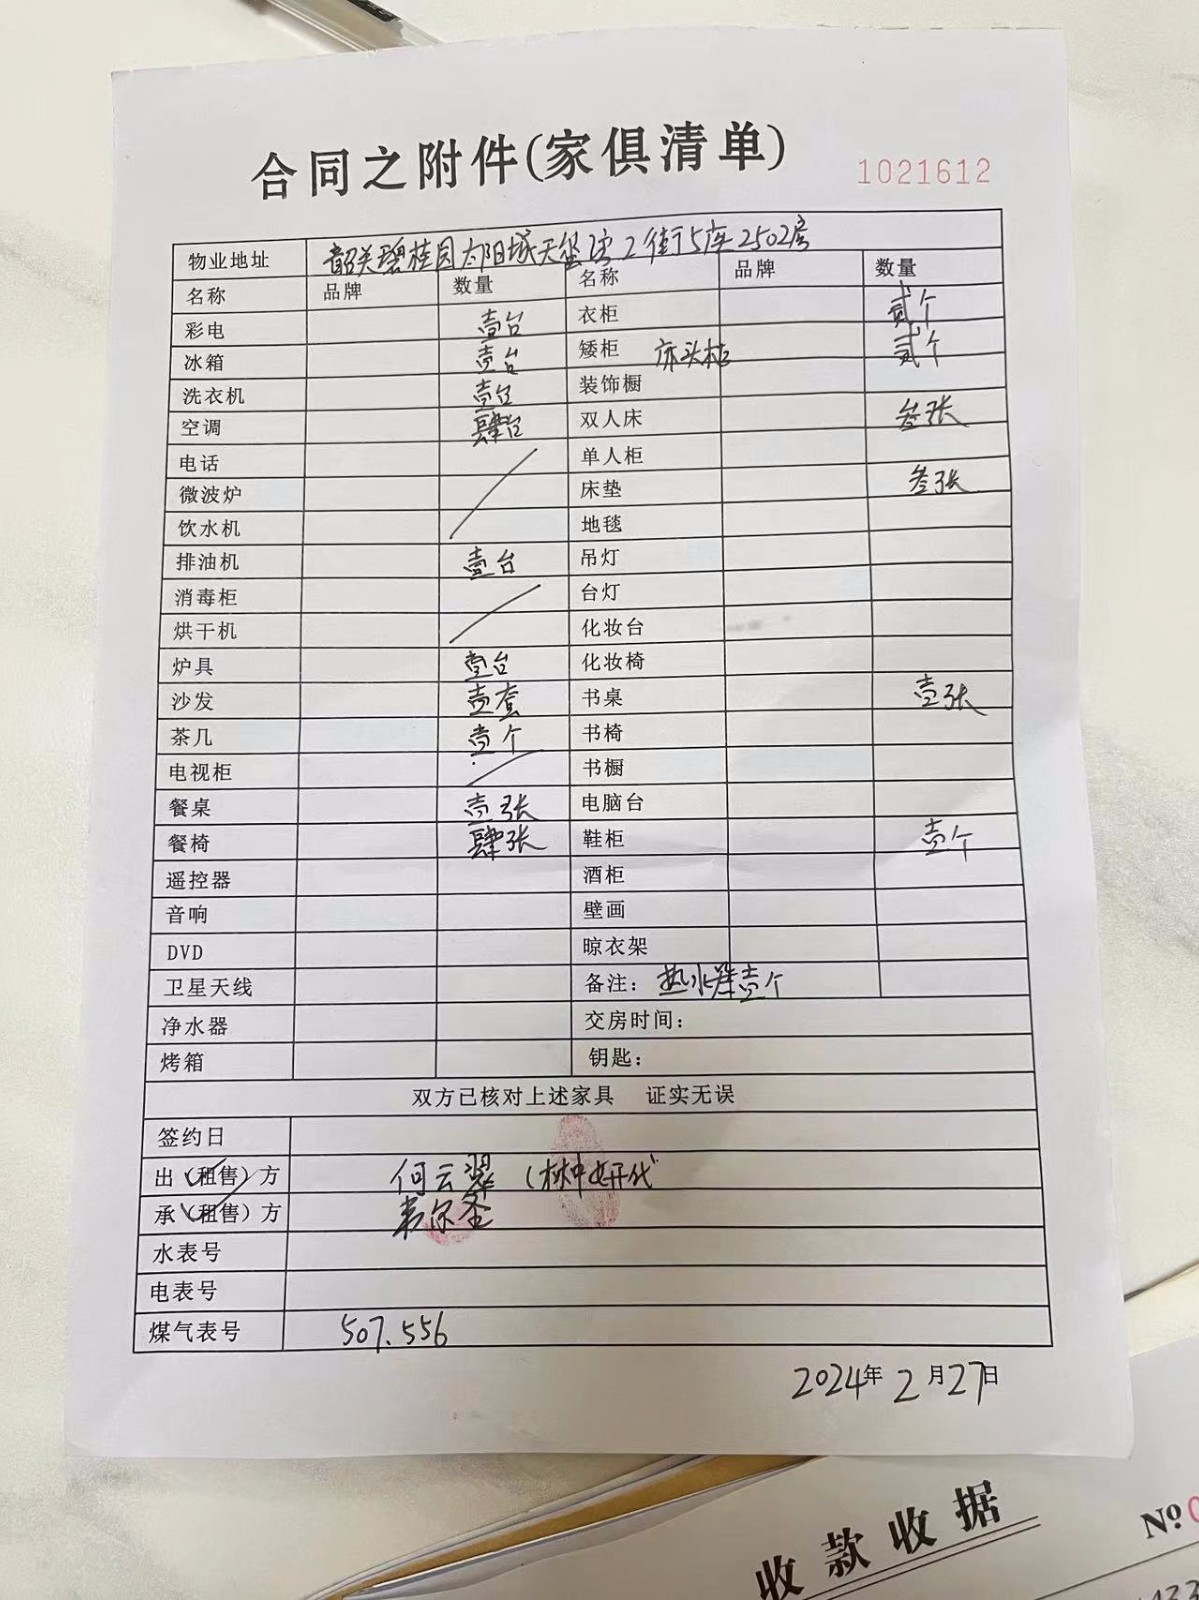 合同之附件(家俱清单)
1021612
物业地址 韶关碧桂园太阳城天玺湾2街5座2502房
名称 品牌 数量 名称 品牌 数量
彩电 壹台 衣柜 贰个
冰箱 壹台 矮柜 床头柜 贰个
洗衣机 壹台 装饰橱
空调 肆台 双人床 叁张
电话 单人柜
微波炉 床垫 叁张
饮水机 地毯
排油机 壹台 吊灯
消毒柜 台灯
烘干机 化妆台
炉具 壹台 化妆椅
沙发 壹套 书桌 壹张
茶几 壹个 书椅
电视柜 书橱
餐桌 壹张 电脑台
餐椅 肆张 鞋柜 壹个
遥控器 酒柜
音响 壁画
DVD 晾衣架
卫星天线 备注: 热水器壹个
净水器 交房时间:
烤箱 钥匙:
双方已核对上述家具 证实无误
签约日
出(租售)方 何云翠
承(租售)方
水表号
电表号
煤气表号 507.556
2024年2月27日
收款收据
Nº0